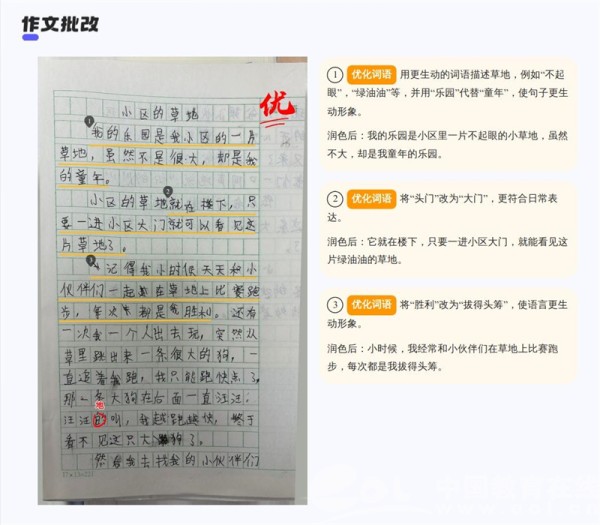 作文批改
小区的草地
优
1
我的乐园是我小区的一片
草地,虽然不是很大,却是我
的童年。
2
小区的草地就在楼下,只
要一进小区大门就可以看见这
片草地了。
3
记得我小时候天天和小
伙伴们一起在草地上比赛跑
步,每次都是我胜利。还有
一次我一个人出去玩,突然从
草里跳出来一条很大的狗,一
直追着我跑,我只能跑快点了,
那条大狗在后面一直汪汪
地
汪汪叫,我越跑越快,终于
看不见这只大狗了。
然我去找我的小伙伴们
1 优化词语 用更生动的词语描述草地,例如“不起
眼”,“绿油油”等,并用“乐园”代替“童年”,使句子更生
动形象。
润色后:我的乐园是小区里一片不起眼的小草地,虽然
不大,却是我童年的乐园。
2 优化词语 将“头门”改为“大门”,更符合日常表
达。
润色后:它就在楼下,只要一进小区大门,就能看见这
片绿油油的草地。
3 优化词语 将“胜利”改为“拔得头筹”,使语言更生
动形象。
润色后:小时候,我经常和小伙伴们在草地上比赛跑
步,每次都是我拔得头筹。